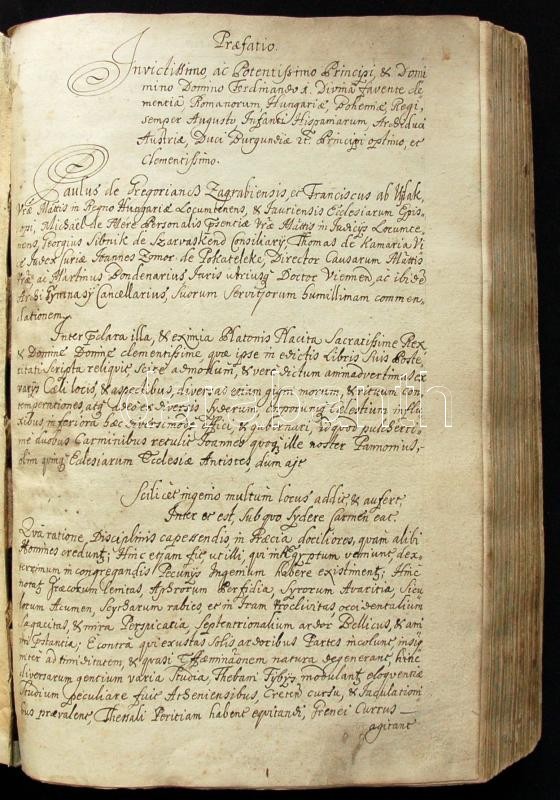 Præfatio.
Invictissimo, ac Potentissimo Principi, & Domi
mino Domino Ferdinando 1. Divina favente cle
mentia Romanorum, Hungariæ, Bohemiæ, Regi,
semper Augusto, Infanti Hispaniarum Archiduci
Austriæ, Duci Burgundiæ &c. Principi optimo, et
Clementissimo.
Paulus de Gregoriancs Zagrabiensis, et Franciscus ab Ujlak,
Vræ Mattis in Regno Hungariæ Locumtenens, & Jauriensis Ecclesiarum Epis-
copi, Michael de Mere Personalis Pſenciæ Vræ Mattis in Judicijs Locumte-
nens, Georgius Sibrik de Szarvaskend Consiliarij Thomas de Kamaria Vi
ce Judex Curiæ Joannes Zomor de Pokateleke, Director Causarum Mattis
Vræ, ac Martinus Bondenarius Juris utriusq Doctor Viennen, ac ibidē
Archi Gymnasij Cancellarius, Suorum Servitiorum humillimam commen-
dationem.
Inter pclara illa, & eximia Platonis Placita Sacratissime Rex
& Domine Domine clementissime, quæ ipse in edictis Libris Suis Poste
ritati scripta reliquit scite admodum, & vere dictum animadvertimus ex
varijs Cæli locis, & aspectibus, diversas etiam gigni morum, & rituum con
temperationes, atq adeo ex diversis syderum, corporumq Celestium influ
xibus inferiora hæc diversimode affici, & gubernari, id quod pulcherri-
me duobus Carminibus retulit Joannes quoq ille noster Pannonius,
olim quinq Eclesiarum Ecclesiæ Antistes, dum ait
Scilicet ingenio multum locus addit, & aufert,
Inter et est, sub quo sydere Carmen eat.
Qua ratione, Disciplinis capessendis in Græcia dociliores, quam alibi
Homines credunt; Hinc etiam fit, ut illi, qui in Ægyptum veniunt dex-
terrimum in congregandis Pecunijs Ingenium habere existiment; Hinc
notat Græcorum levitas, Aphrorum Perfidia, Syrorum Avaritia, Sicu
lorum Acumen, Scytharum rabies, et in Iram proclivitas, occidentalium
Sagacitas, & mira Perspicatia, Septentrionalium ardor Bellicus, & ani
mi Constantia; E contra qui exustas Solis ardoribus Partes incolunt, insig
niter ad timiditatem, & quasi Effæminationem natura degenerant, hinc
diversarum gentium varia Studia, Thebani Tybys modulant, eloquentiæ
Studium peculiare fuit Atheniensibus, Creten cursu, & Iaculationi
bus prævalent, Thessali Peritiam habent equitandi, Cirenei Currus
agitant
1